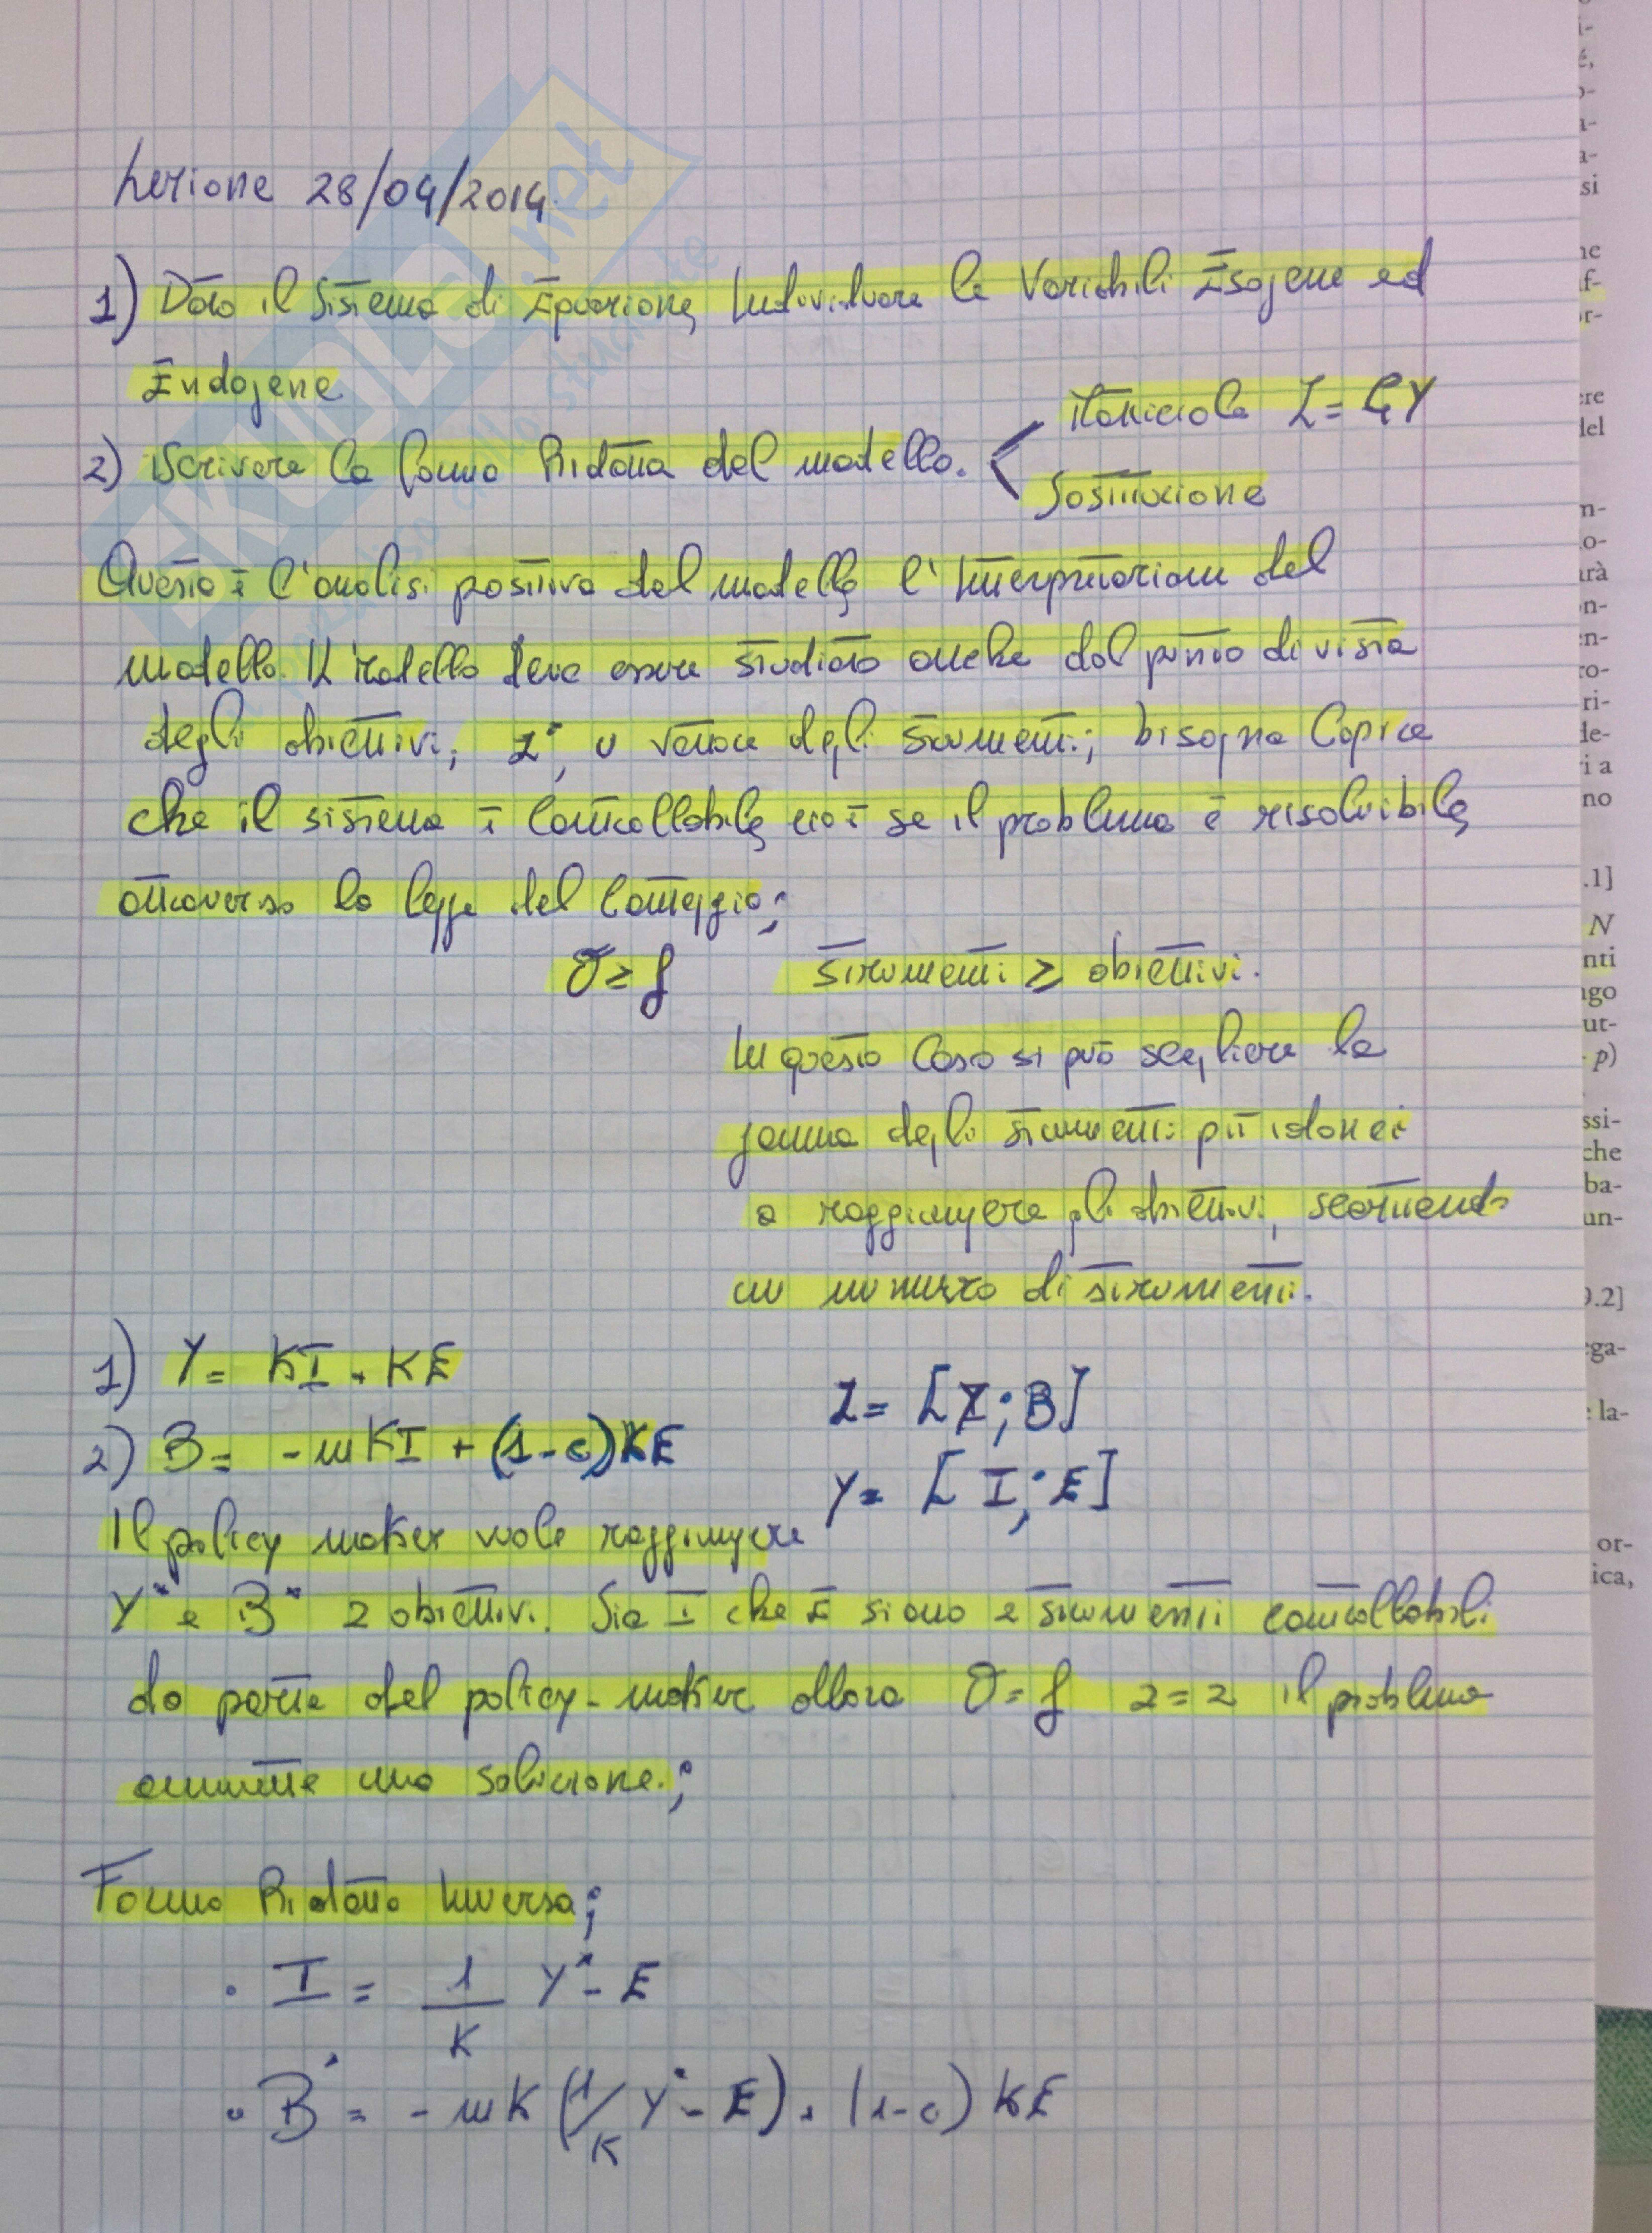 Lezione 28/04/2014
1) Dato il Sistema di Equazione, Individuare le Variabili Esogene ed
Endogene
2) Scrivere la forma Ridotta del modello. < Matriciale Z = GY
Sostituzione
Questo è l'analisi positiva del modello, l'Interpretazione del
modello. Il modello deve essere studiato anche dal punto di vista
degli obiettivi, Z*, o vettore degli strumenti; bisogna Capire
che il sistema è Controllabile, cioè se il problema è risolvibile,
attraverso la legge del Conteggio;
σ ≥ f Strumenti ≥ obiettivi.
In questo Caso si può scegliere la
gamma degli strumenti più idonei
a raggiungere gli obiettivi, scartando
un numero di strumenti.
1) Y = KI + KE
Z = [Y; B]
2) B = -mKI + (1-c)KE
Y = [I; E]
Il policy maker vuole raggiungere
Y* e B* 2 obiettivi. Sia I che E siano 2 strumenti controllabili
da parte del policy-maker allora σ = f 2=2 il problema
ammette una soluzione.;
Forma Ridotta Inversa;
• I = 1/K Y* - E
• B* = -mK (1/K Y* - E) + (1-c) KE
SKUOLA.net
il paradiso dello studente